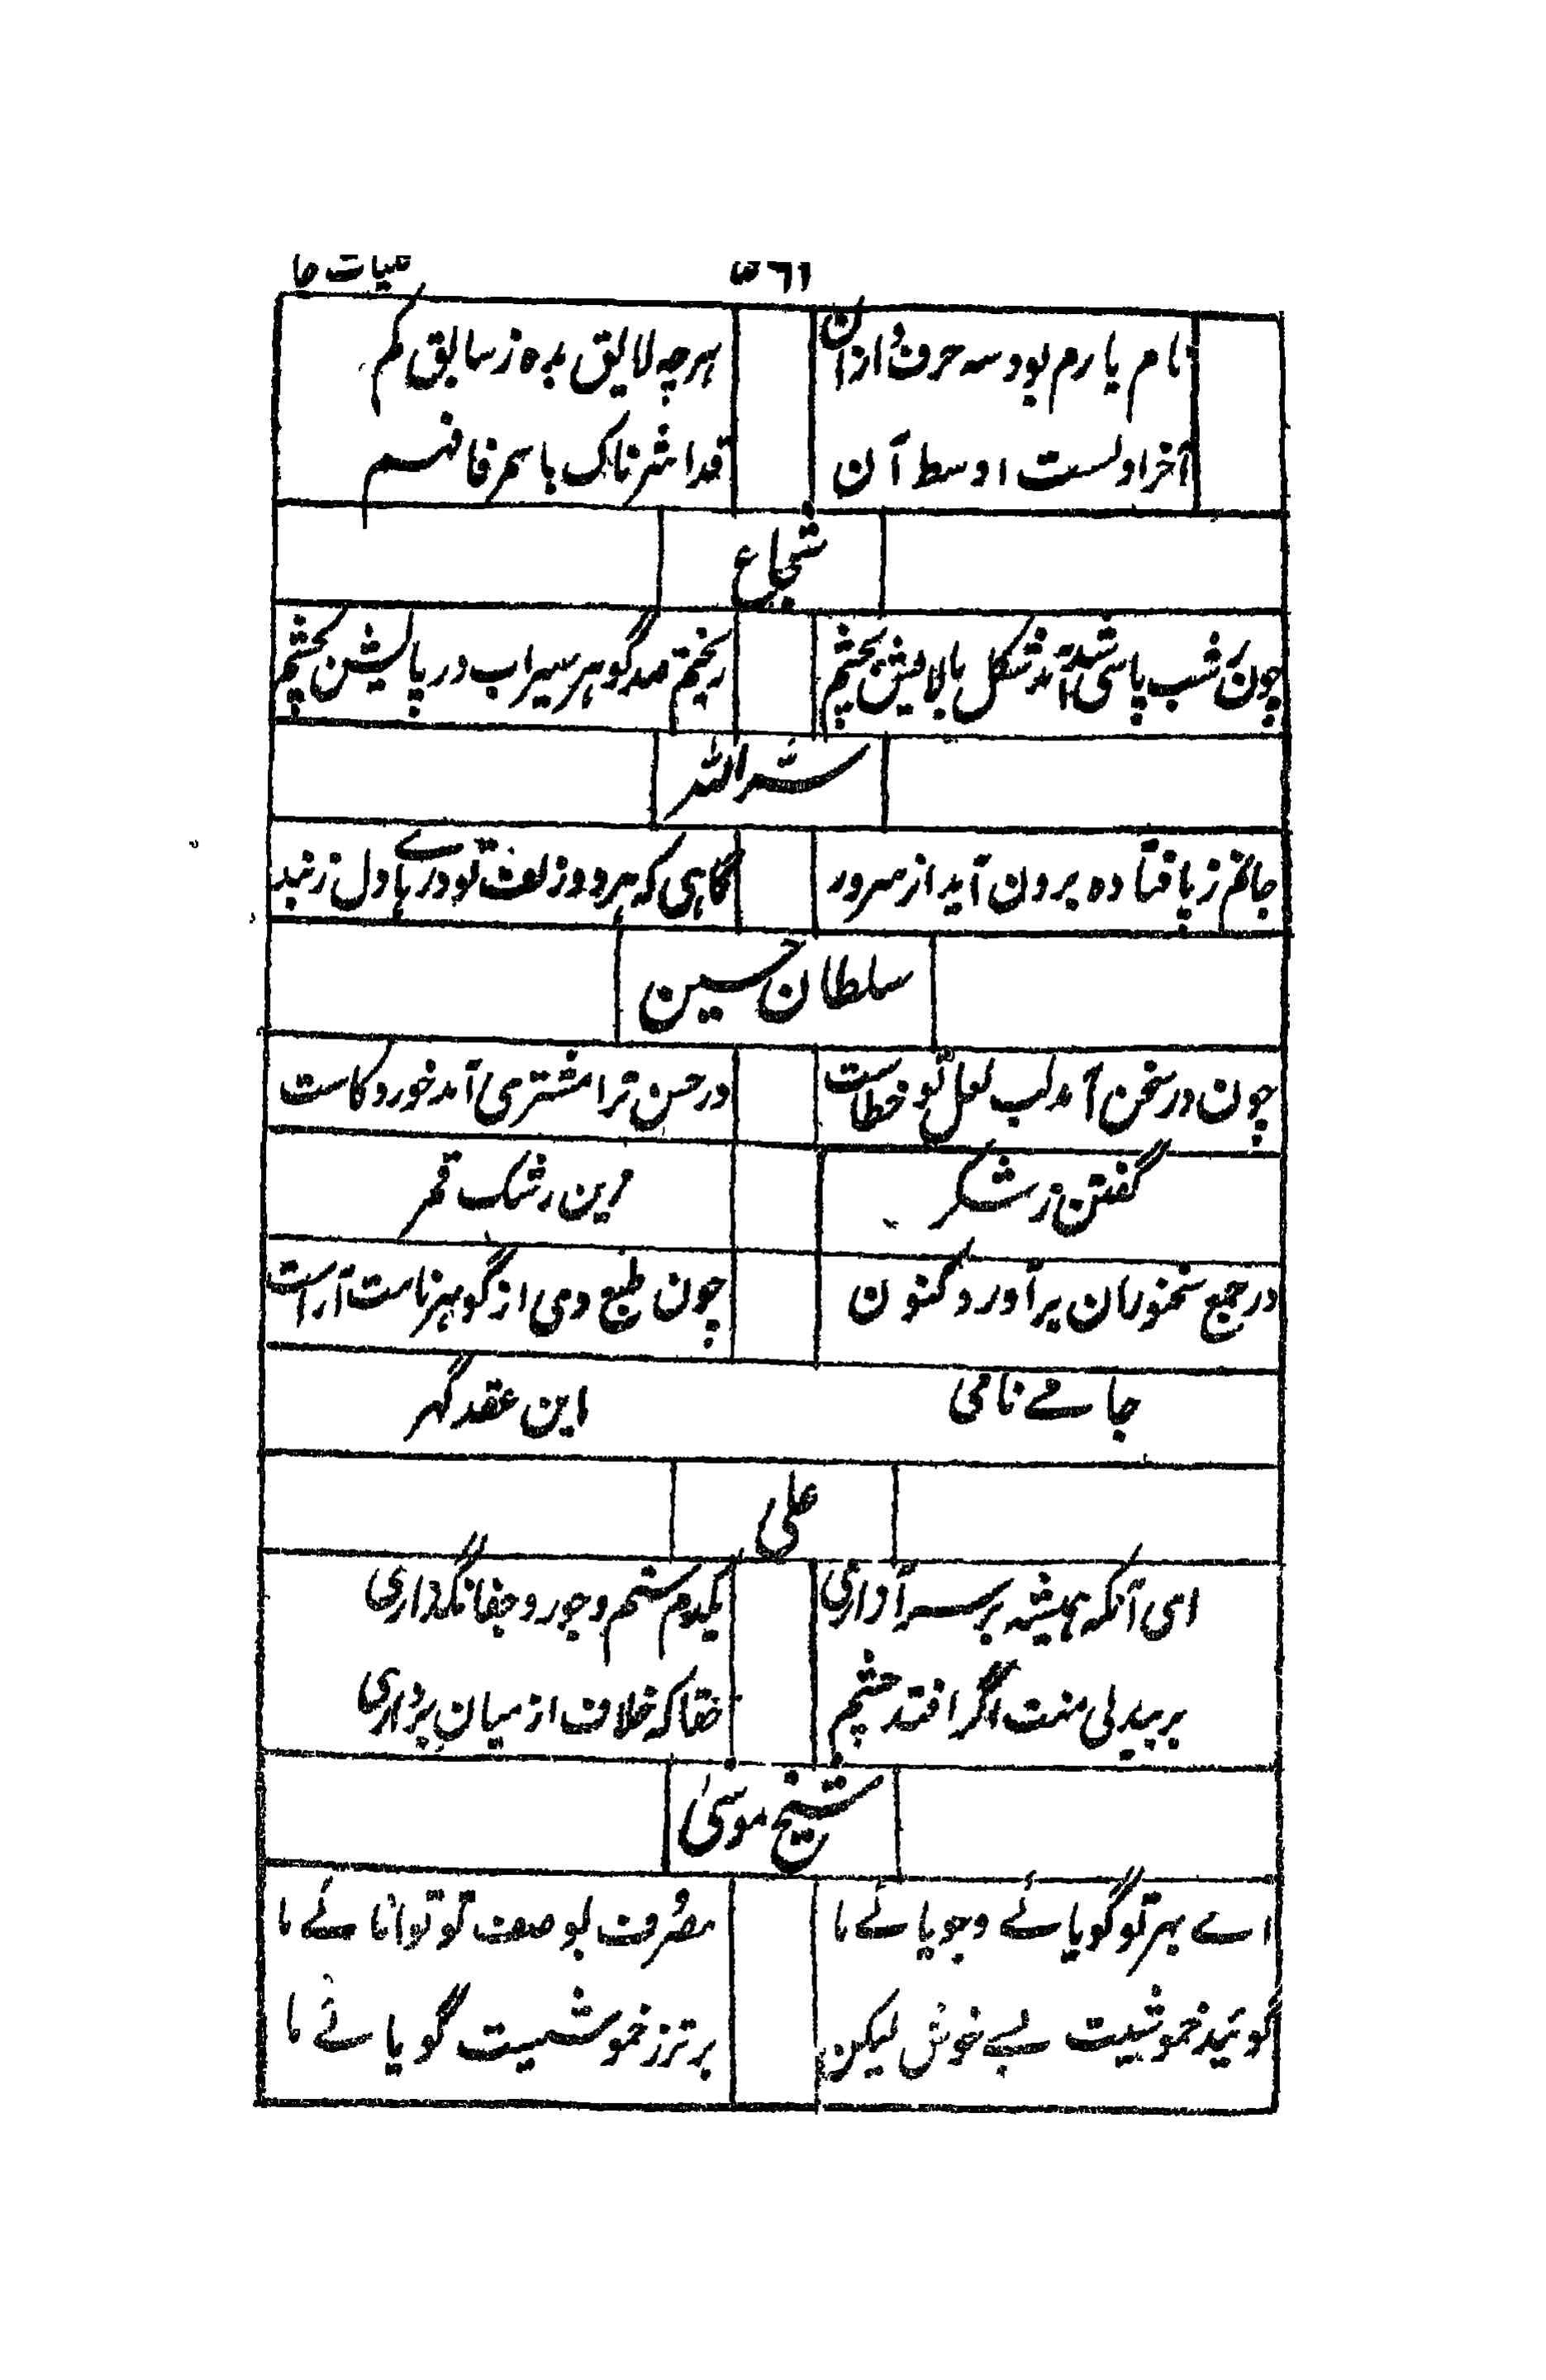 کلیات جا
۵۶۱
نام یارم بود سه حرف و ازان
هرچه لایق بده ز سابق کم
آخر اولست اوسط آن
شجاع
چون شب پاسی شد آمد شکل بالایش بچشم
ریختم صد گوهر سیراب در پایش بچشم
شراللہ
جانم ز پا فتاده برون آید از سرور
گاهی که هر دو زلف تو در هادل زنند
سلطان حسین
چون در سخن آمد لب لعل تو خطاست
در حسن ترا مشتری آمد خور و کاست
گفتن ز شکر
مرین رشک قمر
در جمع سخنوران برآورد کنون
چون طبع وی از گوهر نامت آراست
جامے نامی
این عقد گهر
علی
ای آنکه همیشه بر سر آزاری
یکدم ستم و جور و جفا نگذاری
بر بیدلی منت اگر افتد چشم
حقا که خلاف از میان برداری
شیخ موسیٰ
اے بهر تو گویائے و جویائے ما
مصروف بوصف تو توانائے ما
گویند خموشیت بسے خوش لیکن
برتر ز خموشیست گویائے ما